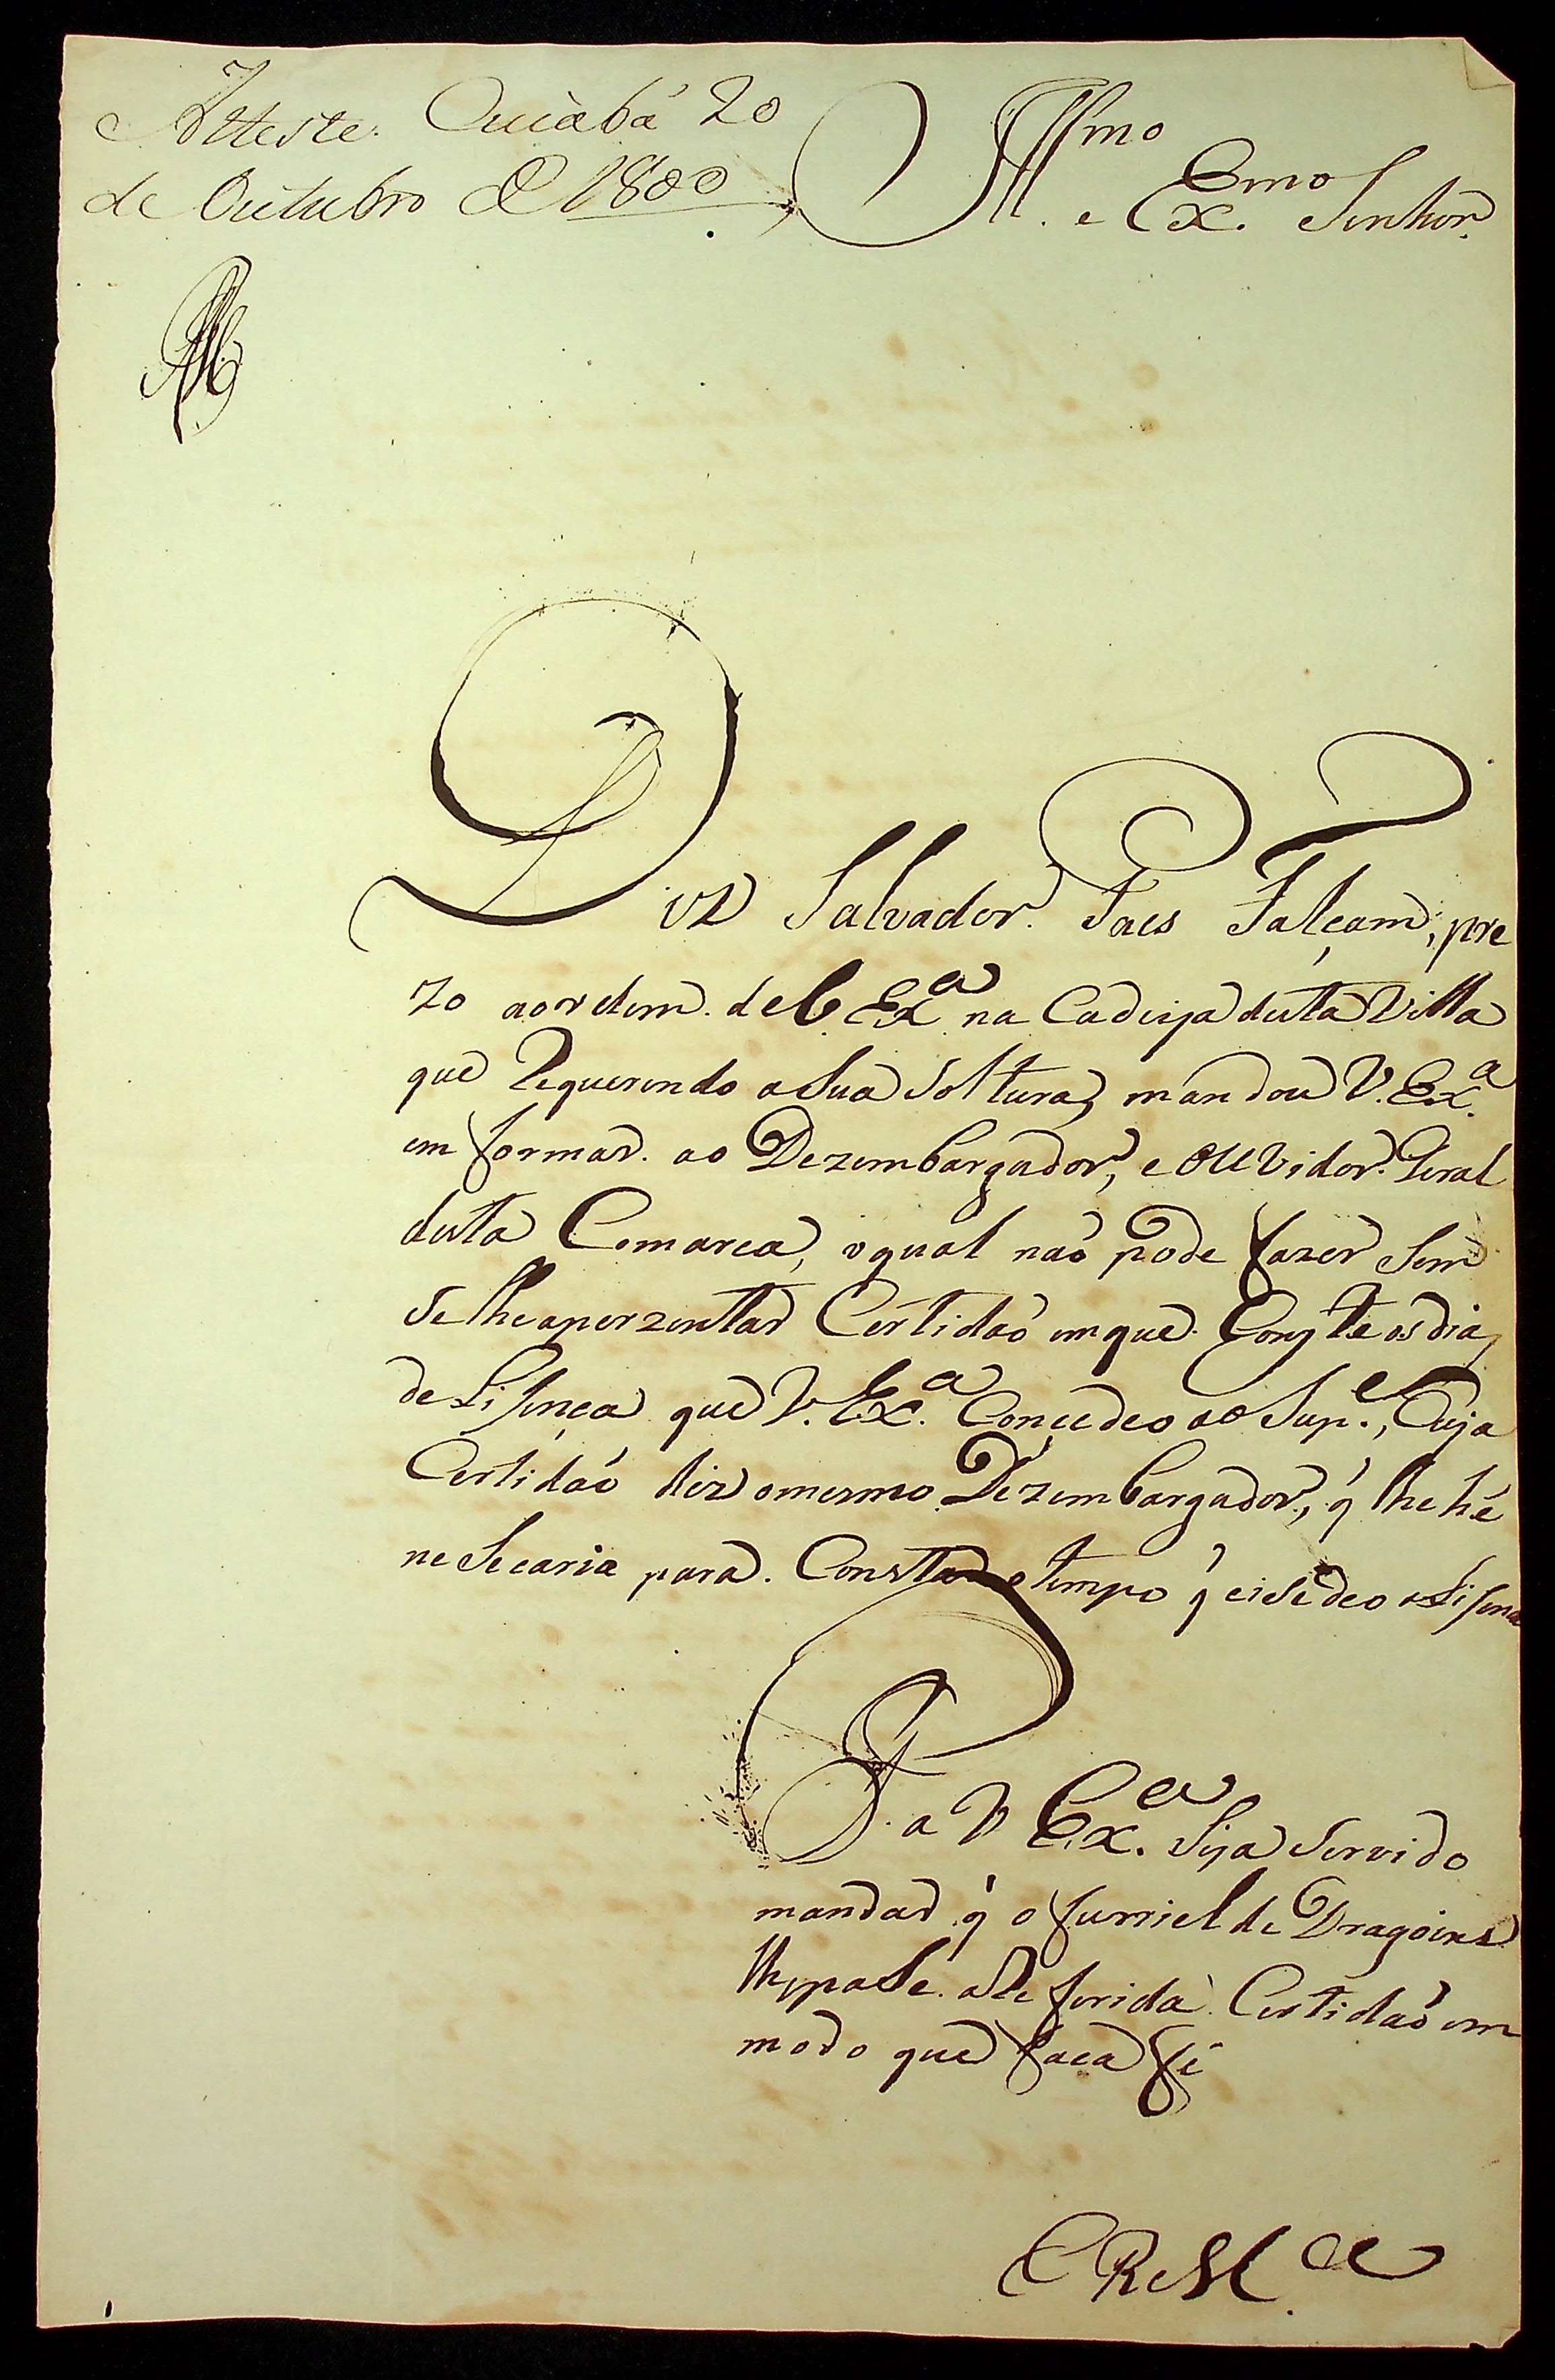 Atteste. Cuiabá 20
de Outubro de 1800
Illmo
e Exmo Senhor
Diz Salvador Paes Falçam, pre
zo aordem de V. Exa na Cadeya desta Villa
que Requerendo aSua Soltura, mandou V. Exa
emformar ao Dezembargador, e OUVidor Geral
desta Comarca, oqual naõ pode fazer Sem
Se lhe aperzentar Certidaõ emque Conste os dias
de Lisença que V. Exa Conçedeo ao Supe, Cuja
Certidaõ diz omesmo Dezembargador, q̃ lhe hé
neSecaria para Constar otempo q̃ Se deo aLisença
P. a V Exa. Seja Servido
mandar q̃ o furriel de Dragoens
lhe paSe aReferida Certidaõ em
modo que faca fé
E R Mce